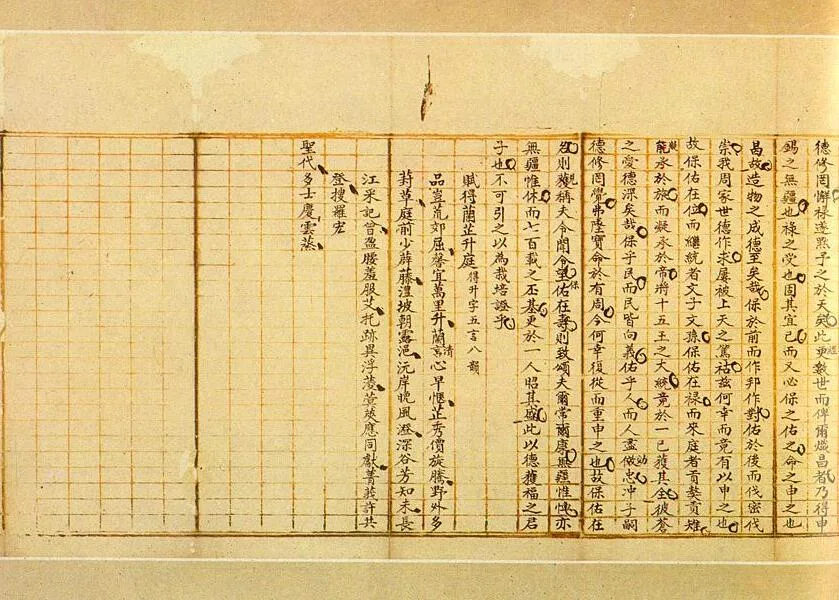 德修罔懈祿遂熙予之於天矣此更數世而俾爾熾昌者乃得申
錫之無疆也祿之受也固其宜已而又必保之佑之命之申之也
昌故造物之成德至矣哉保於前而作邦作對佑於後而伐密伐
崇我周家世德作求屢被上天之篤祜茲何幸而竟有以申之也
故保佑在位而繼統者文子文孫保佑在祿而來庭者貢獒貢雉
承於旅而凝承於常將十五王之大統竟於一已獲其全彼蒼
之愛德深矣哉保乎民而民皆向義佑乎人而人盡做忠冲子嗣
德修罔覺弗墜寶命於有周今何幸復從而重申之也故保佑在
名則獲稱夫令聞令望佑在壽則致頌夫爾常爾康無疆惟恤亦
無疆惟休而七百載之丕基更於一人昭其盛此以德獲福之君
子也不可引之以為栽培證乎
賦得蘭芷升庭 得升字五言八韻
品豈荒郊屈馨宜萬里升蘭言心早愜芷秀價旋騰野外多
葑草庭前少薜藤澧坡朝露浥沅岸晚風澄深谷芳知未長
江采記曾盈腰羞服艾托跡異浮蓤萱莢應同獻菁莪許共
登搜羅宏
聖代多士慶雲蒸